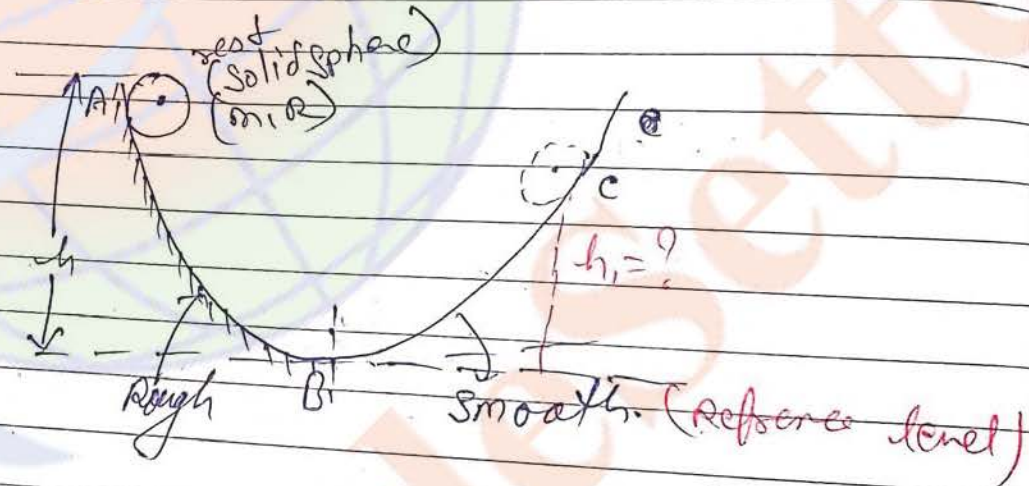 rest
(solid sphere)
(m, R)
A
h
C
h₁ = ?
Rough
B
smooth. (Refrence level)